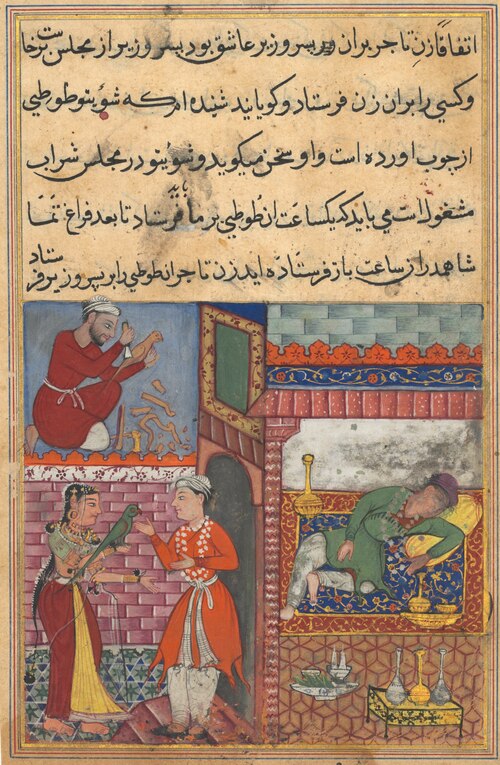 اتفاقاً زن تاجر بران پسر وزیر عاشق بود پسر وزیر از مجلس برخاست
و کسی را بران زن فرستاد و گویانید شنیده ام که شوی تو طوطی
از چوب آورده است و او سخن میکوید و شوی تو در مجلس شراب
مشغول است می باید که یکساعت آن طوطی بر ما فرستاد تا بعد فراغ تماشا
هم دران ساعت باز فرستاده اید زن تاجر آن طوطی را بر پسر وزیر فرستاد